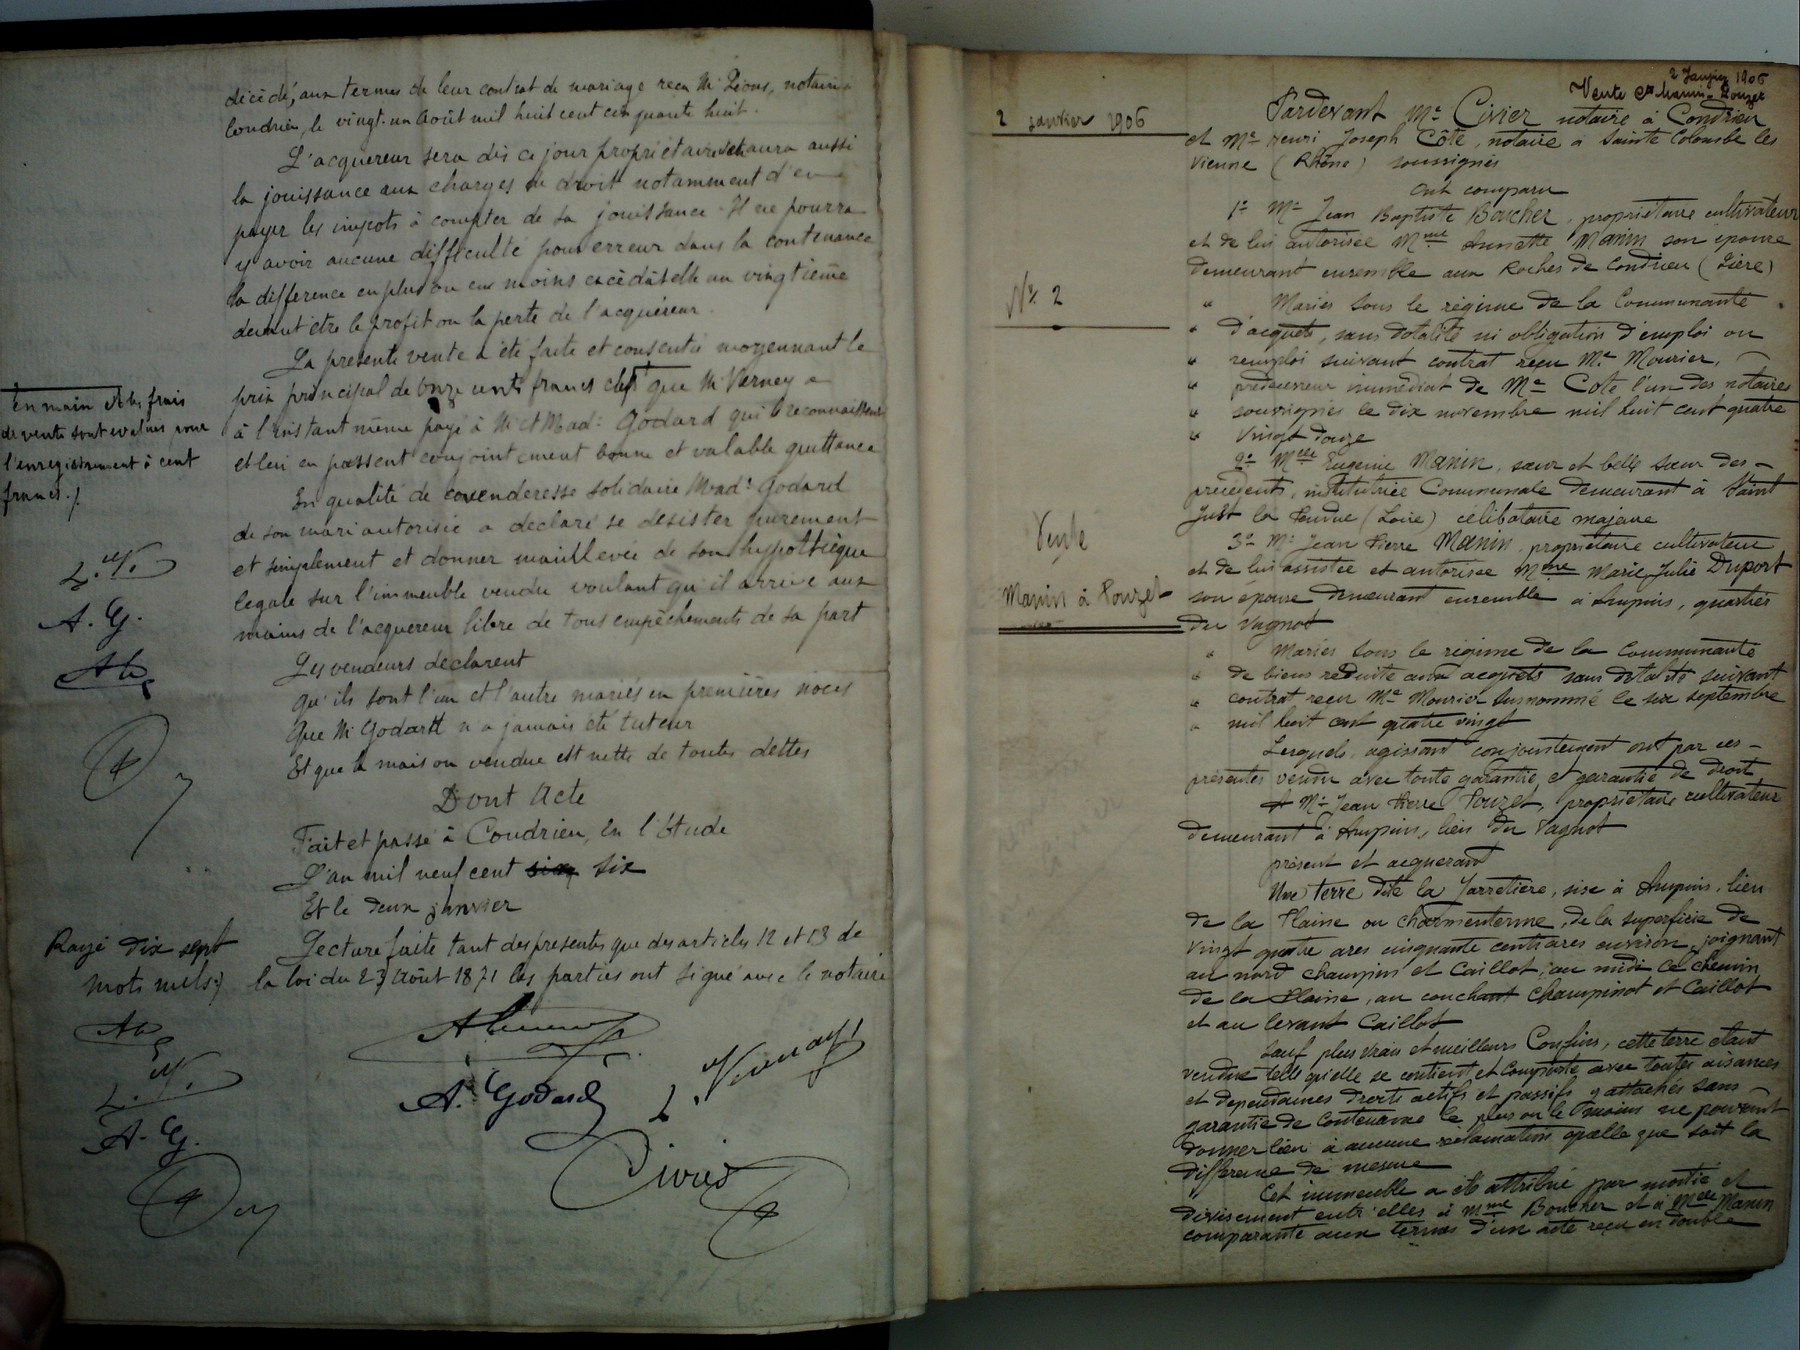 décédé, aux termes de leur contrat de mariage reçu Me Péous, notaire à
Condrieu, le vingt-un Août mil huit cent cinquante huit.
L'acquéreur sera dès ce jour propriétaire et aura aussi
la jouissance aux charges de droit notamment d'en
payer les impôts à compter de sa jouissance. Il ne pourra
y avoir aucune difficulté pour erreur dans la contenance
la différence en plus ou en moins excédât-elle un vingtième
devant être le profit ou la perte de l'acquéreur.
La présente vente a été faite et consentie moyennant le
prix principal de onze cents francs que Mr Verney a
à l'instant même payé à Mr et Made Godard qui le reconnaissent
et lui en passent conjointement bonne et valable quittance
En qualité de covenderesse solidaire Made Godard
de son mari autorisée a déclaré se désister purement
et simplement et donner mainlevée de son hypothèque
légale sur l'immeuble vendu voulant qu'il arrive aux
mains de l'acquéreur libre de tous empêchements de sa part
Les vendeurs déclarent
qu'ils sont l'un et l'autre mariés en premières noces
Que Mr Godard n'a jamais été tuteur
Et que la maison vendue est nette de toutes dettes
Dont Acte
Fait et passé à Condrieu, En l'Etude
L'an mil neuf cent six
Et le deux janvier
Lecture faite tant des présentes que des articles 12 et 13 de
la loi du 23 Août 1871 les parties ont signé avec le notaire
En main et les frais
de vente sont évalués pour
l'enregistrement à cent
francs ./.
L. V.
A. G.
Rayé dix sept
mots nuls
L. V.
A. G.
A. Godard
L. Verney
Civier
2 Janvier 1906
Vente Manin-Pouzet
2 janvier 1906
No 2
Vente
Manin à Pouzet
Pardevant Me Civier notaire à Condrieu
et Me Henri Joseph Côte, notaire à Sainte Colombe les
Vienne (Rhône) soussignés
Ont comparu
1o Mr Jean Baptiste Boucher, propriétaire cultivateur
et de lui autorisée Mme Annette Manin son épouse
demeurant ensemble aux Roches de Condrieu (Isère)
" Mariés sous le régime de la Communauté
" d'acquêts, sans dotalité ni obligation d'emploi ou
" remploi suivant contrat reçu Me Mourier,
" prédécesseur immédiat de Me Cote l'un des notaires
" soussignés le dix novembre mil huit cent quatre
" vingt douze
2o Melle Eugenie Manin, sœur et belle sœur des
précédents, institutrice Communale demeurant à Saint
Just la Pendue (Loire) célibataire majeure
3o Mr Jean Pierre Manin, propriétaire cultivateur
et de lui assistée et autorisée Mme Marie Julie Duport
son épouse demeurant ensemble à Ampuis, quartier
du Vagnot
" Mariés sous le régime de la Communauté
" de biens réduite aux acquêts sans dotalité suivant
" contrat reçu Me Mourier susnommé le six septembre
" mil huit cent quatre vingt
Lesquels, agissant conjointement ont par ces
présentes vendu avec toute garantie, et garantie de droit
A Mr Jean Pierre Pouzet, propriétaire cultivateur
demeurant à Ampuis, lieu du Vagnot
présent et acquérant
Une terre dite la Jarretière, sise à Ampuis, lieu
de la Plaine ou Charmenterme, de la superficie de
vingt quatre ares cinquante centiares environ, joignant
au nord Champin et Caillot, au midi le chemin
de la Plaine, au couchant Champinot et Caillot
et au levant Caillot
Sauf plus vrais et meilleurs Confins, cette terre étant
vendue telle qu'elle se contient et Comporte avec toutes aisances
et dépendances droits actifs et passifs y attachés sans
garantie de Contenance le plus ou le moins ne pouvant
donner lieu à aucune réclamation quelle que soit la
différence de mesure
Cet immeuble a été attribué par moitié et
divisément entr'elles à Mme Boucher et à Melle Manin
comparante aux termes d'un acte reçu en double